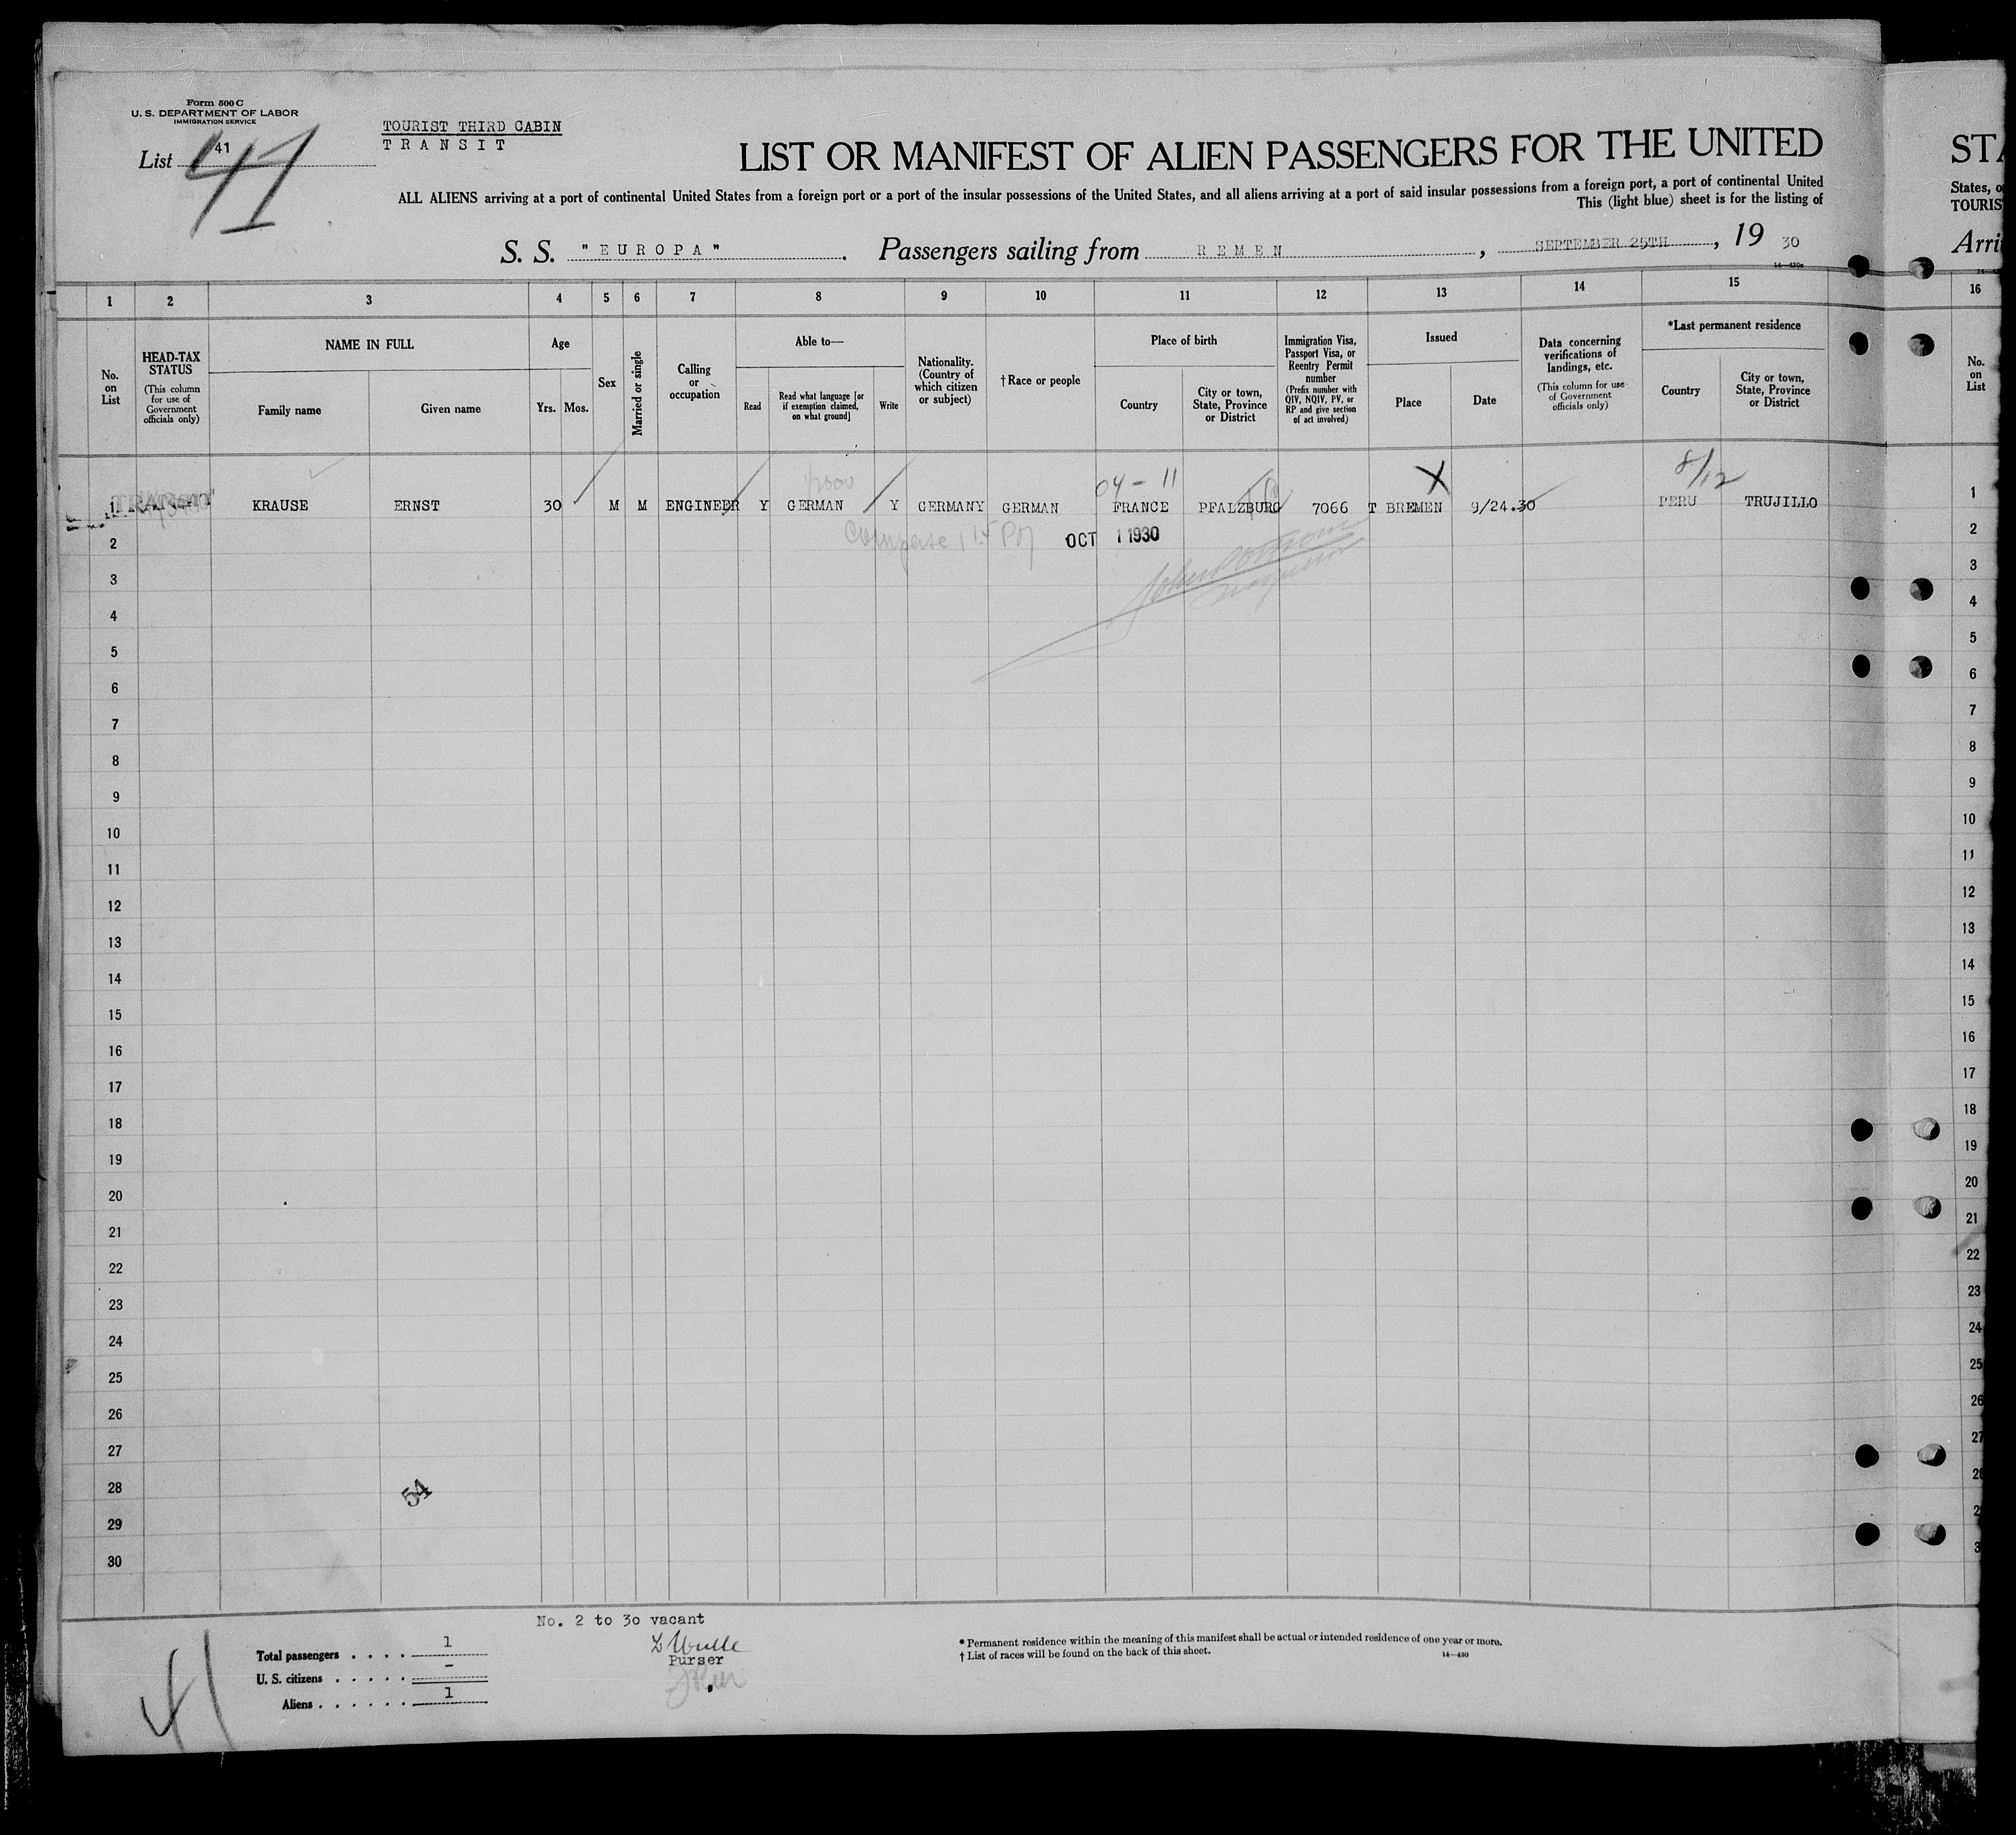 Form 500 C
U. S. DEPARTMENT OF LABOR
IMMIGRATION SERVICE
List 41
41
TOURIST THIRD CABIN
TRANSIT
LIST OR MANIFEST OF ALIEN PASSENGERS FOR THE UNITED
ALL ALIENS arriving at a port of continental United States from a foreign port or a port of the insular possessions of the United States, and all aliens arriving at a port of said insular possessions from a foreign port, a port of continental United
This (light blue) sheet is for the listing of
S. S. "EUROPA". Passengers sailing from REMEN, SEPTEMBER 25TH, 19 30
STA
States, o
TOURIS
Arri
1 2 3 4 5 6 7 8 9 10 11 12 13 14 15 16
No. on List
HEAD-TAX STATUS
(This column for use of Government officials only)
NAME IN FULL
Family name
Given name
Age
Yrs. Mos.
Sex
Married or single
Calling or occupation
Able to—
Read
Read what language [or if exemption claimed, on what ground]
Write
Nationality. (Country of which citizen or subject)
†Race or people
Place of birth
Country
City or town, State, Province or District
Immigration Visa, Passport Visa, or Reentry Permit number
(Prefix number with QIV, NQIV, PV, or RP and give section of act involved)
Issued
Place
Date
Data concerning verifications of landings, etc.
(This column for use of Government officials only)
*Last permanent residence
Country
City or town, State, Province or District
No. on List
04-11
X
8/12
1 TRANSIT KRAUSE ERNST 30 M M ENGINEER Y GERMAN Y GERMANY GERMAN FRANCE PFALZBURG 7066 T BREMEN 9/24.30 PERU TRUJILLO 1
OCT 1 1930
2 2
3 3
4 4
5 5
6 6
7 7
8 8
9 9
10 10
11 11
12 12
13 13
14 14
15 15
16 16
17 17
18 18
19 19
20 20
21 21
22 22
23 23
24 24
25 25
26 26
27 27
28 28
54
29 2
30 3
No. 2 to 30 vacant
Total passengers . . . . 1
U. S. citizens . . . . . -
Aliens . . . . . . 1
Purser
41
* Permanent residence within the meaning of this manifest shall be actual or intended residence of one year or more.
† List of races will be found on the back of this sheet.
14—430